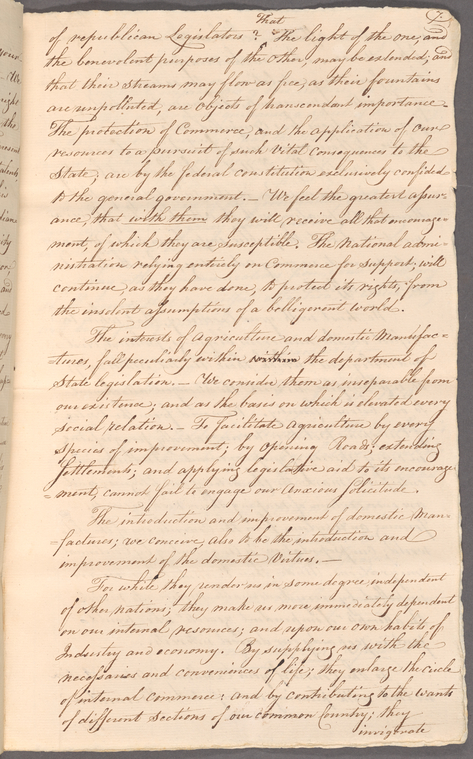 7.
That
of republican Legislators? The light of the one, and
the benevolent purposes of the other, may be extended; and
that their streams may flow as free, as their fountains
are unpolluted, are objects of transcendant importance.
The protection of Commerce, and the application of our
resources to a pursuit of such Vital consequences to the
State; are by the federal constitution exclusively confided
to the general government. — We feel the greatest assur-
ance, that with them they will receive all that encourage-
ment, of which they are susceptible. The National admi-
nistration relying entirely on Commerce for Support; will
continue, as they have done, to protect its rights, from
the insolent assumptions of a belligerent world.
The interests of Agriculture and domestic Manufac-
=tures, fall peculiarly within within the department of
State legislation. — We consider them as inseparable from
our existence; and as the basis on which is elevated every
social relation. — To facilitate agriculture by every
Species of improvement; by opening Roads; extending
Settlements; and applying legislative aid to its encourage
=ment, cannot fail to engage our Anxious Solicitude.
The introduction and improvement of domestic Man-
=factures; we conceive, also to be the introduction and
improvement of the domestic Virtues. —
For while they render us in Some degree independent
of other nations; they make us more immediately dependent
on our internal resources; and upon our own habits of
Industry and economy. By supplying us with the
necessaries and conveniences of life; they enlarge the circle
of internal commerce: and by contributing to the wants
of different Sections of our common Country; they
invigorate